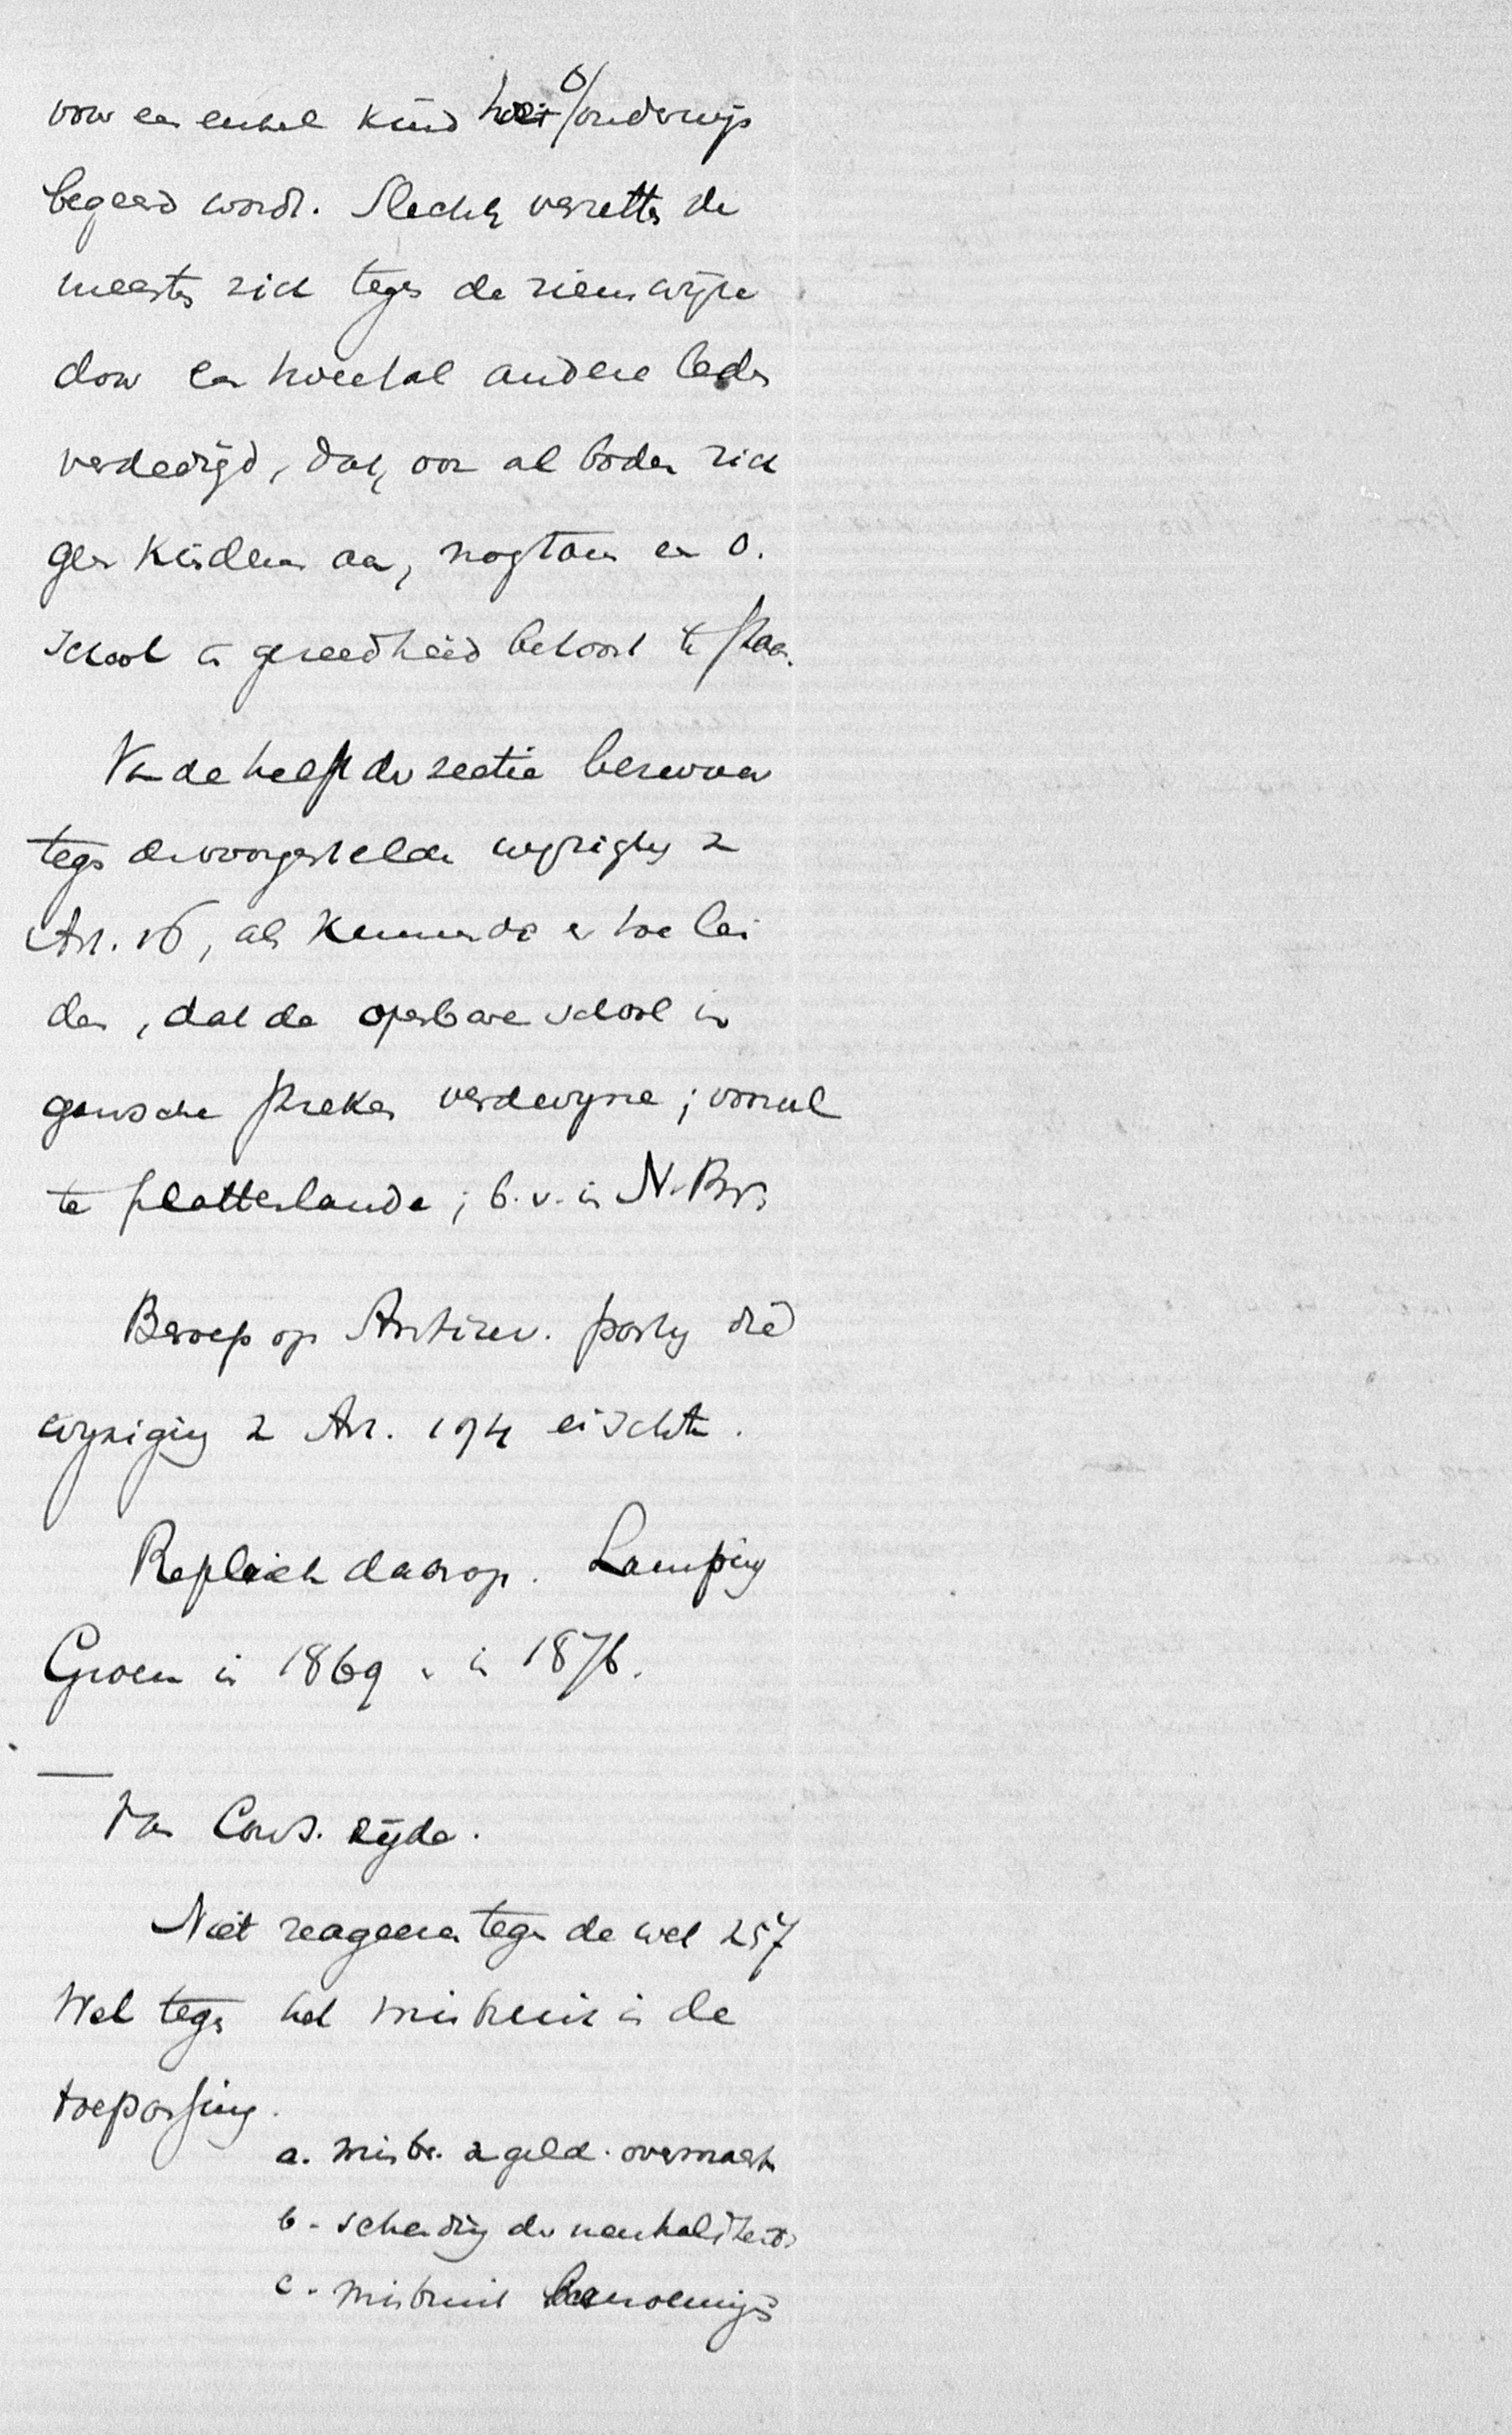 voor een enkel kind het o/onderwijs
begeerd wordt. Slechts verzetten de
meesten zich tegen de zienswijze
door een tweetal andere leden
verdedigd, dat, ook al boden zich
geen kinderen aan, nogtans een O.
school in gereedheid behoort te staan.
Van de helft der sectie bezwaar
tegen de voorgestelde wijziging v
Art. 16, als kunnende er toe lei
den, dat de openbare school in
gansche streken verdwijne; vooral
te plattenlande; b.v. in N.-Br.
Beroep op Antirev. party die
wyziging v Art. 194 eischte.
Repliek daarop.
Groen in 1869 en in 1876.
Van Cons. zijde.
Niet reageren tegen de wet 257
Wel tegen het misbruik in de
toepassing.
a. misbr. v geld. overmacht
b. schending der neutraliteit
c. misbruik benoemings